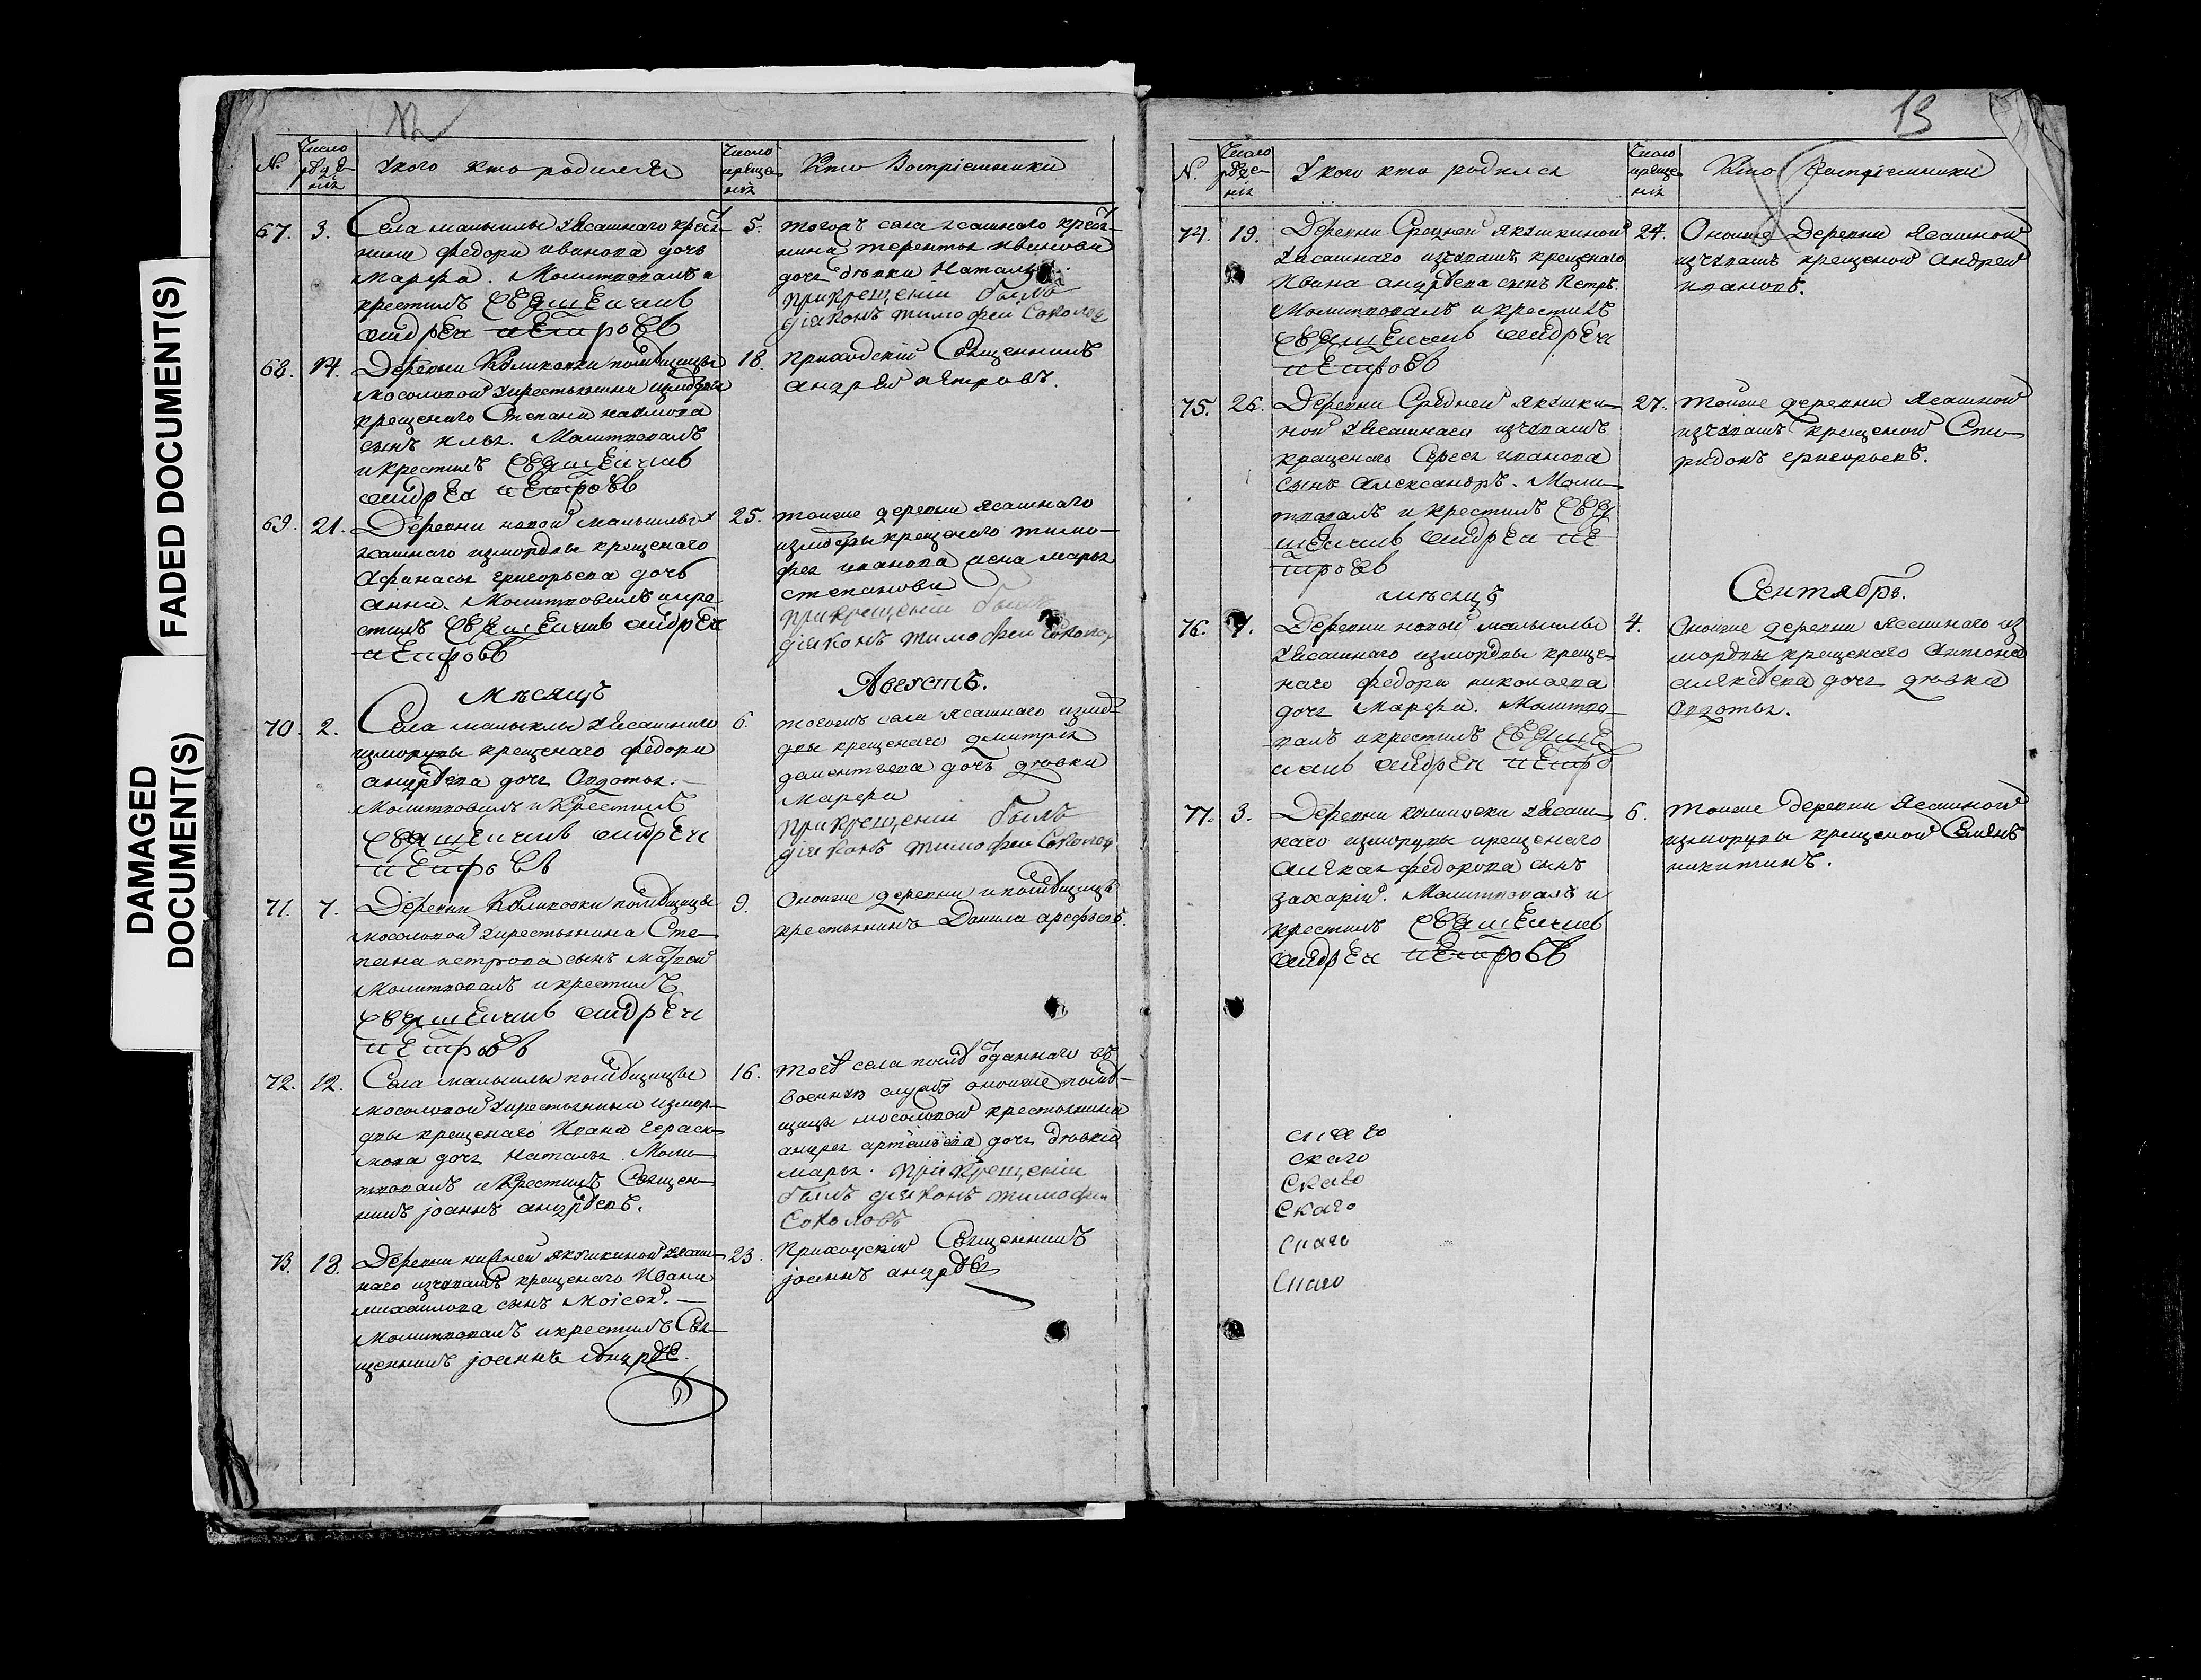 FADED DOCUMENT(S)
DAMAGED
DOCUMENT(S)
№
Число
рожде
нія
У кого кто родился
Число
креще
нія
Кто Восприемники
67. 3.
Села малыклы У Ясашнаго крестья
нина федора иванова дочь
марѳа. Молитвовалъ и
крестилъ Священникъ
андрей петровъ
5.
тогожъ села ясашнаго крестья
нина терентья иванова
дочь дѣвка Наталья.
при крещеніи былъ
діяконъ тимофей Соколов
68. 14.
Деревни помѣщицы
мосоловой У крестьянина измордвы
крещенаго Степана
сынъ илья. Молитвовалъ
и крестилъ Священникъ
андрей петровъ
18.
Приходскій Священникъ
андрей петровъ.
69. 21.
Деревни новой малыклы У
ясашнаго измордвы крещенаго
Афанасья григорьева дочь
анна. Молитвовалъ и кре
стилъ Священникъ андрей
петровъ
25.
тоиже деревни ясашнаго
измордвы крещенаго тимо
фея иванова жена марья
степанова
при крещеніи былъ
діяконъ тимофей Соколов
Мѣсяцъ
Августъ.
70. 2.
Села малыклы У Ясашнаго
измордвы крещенаго федора
андрѣева дочь Авдотья.
Молитвовалъ и крестилъ
Священникъ андрей
петровъ
6.
тогожъ села ясашнаго измор
двы крещенаго димитрія
дементьева дочь дѣвка
марѳа
при крещеніи былъ
діяконъ тимофей Соколов
71. 7.
Деревни помѣщицы
мосоловой У крестьянина Сте
пана петрова сынъ матвей
Молитвовалъ и крестилъ
Священникъ андрей
петровъ
9.
Оноиже деревни и помѣщицы
крестьянинъ Данила арефьевъ.
72. 12.
Села малыклы помѣщицы
мосоловой У крестьянина измор
двы крещенаго Ивана гераси
мова дочь наталья. Моли
твовалъ и крестилъ Священ
никъ іоаннъ андрѣевъ.
16.
тогож села отданнаго въ
военную службу оноиже помѣ
щицы мосоловой крестьянина
андрея артемьева дочь дѣвка
марья. при крещеніи
былъ діяконъ тимофей
Соколовъ
73. 18.
Деревни нижней якушкиной У ясаш
наго изчювашъ крещенаго Ивана
михайлова сынъ Моісей.
Молитвовалъ и крестилъ Свя
щенникъ іоаннъ андрѣе.
23.
Приходскій Священникъ
іоаннъ андрѣев
13
№
Число
рожде
нія
У кого кто родился
Число
креще
нія
Кто Восприемники
74. 19.
Деревни Средней якушкиной
У Ясашнаго изчювашъ крещенаго
Ивана андрѣева сынъ Петръ.
Молитвовалъ и крестилъ
Священникъ андрей
петровъ
24.
Оноиже Деревни Ясашной
изчювашъ крещеной андрей
ивановъ.
75. 26.
Деревни Средней якушки
ной У Ясашнаго изчювашъ
крещенаго Сергея иванова
сынъ Александръ. Моли
твовалъ и крестилъ Свя
щенникъ андрей пе
тровъ
27.
Тоиже деревни Ясашной
изчювашъ крещеной Спи
ридонъ григорьевъ.
мѣсяцъ
Сентябрь.
76. 1.
Деревни новой малыклы
У Ясашнаго измордвы креще
наго федора николаева
дочь марѳа. Молитво
валъ и крестилъ Священ
никъ андрей петро
4.
Оноиже деревни Ясашнаго из
мордвы крещенаго Антона
алексѣева дочь дѣвка
Авдотья.
77. 3.
Деревни У Ясаш
наго измордвы крещенаго
федорова сынъ
захарій. Молитвовалъ и
крестилъ Священникъ
андрей петровъ
6.
Тоиже деревни Ясашной
измордвы крещеной Семенъ
никитинъ.
скаго
скаго
скаго